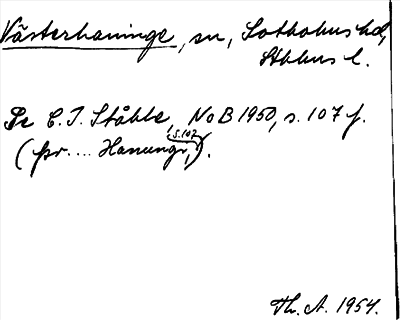 Västerhaninge, sn, Sotholms hd,
Sthlms l.
Se C. I. Ståhle, NoB 1950, s. 107 f.
(pr .... Hanungr, s. 107).
Th. A. 1954.